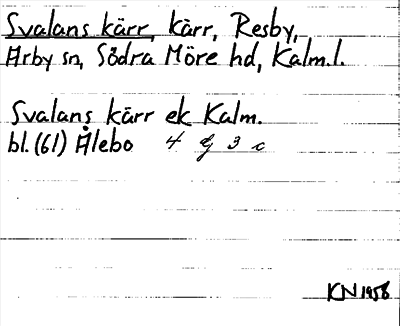 Svalans kärr, kärr, Resby,
Arby sn, Södra Möre hd, Kalm.l.
Svalans kärr ek Kalm.
bl. (61) Ålebo 4 G 3 c
KN 1958